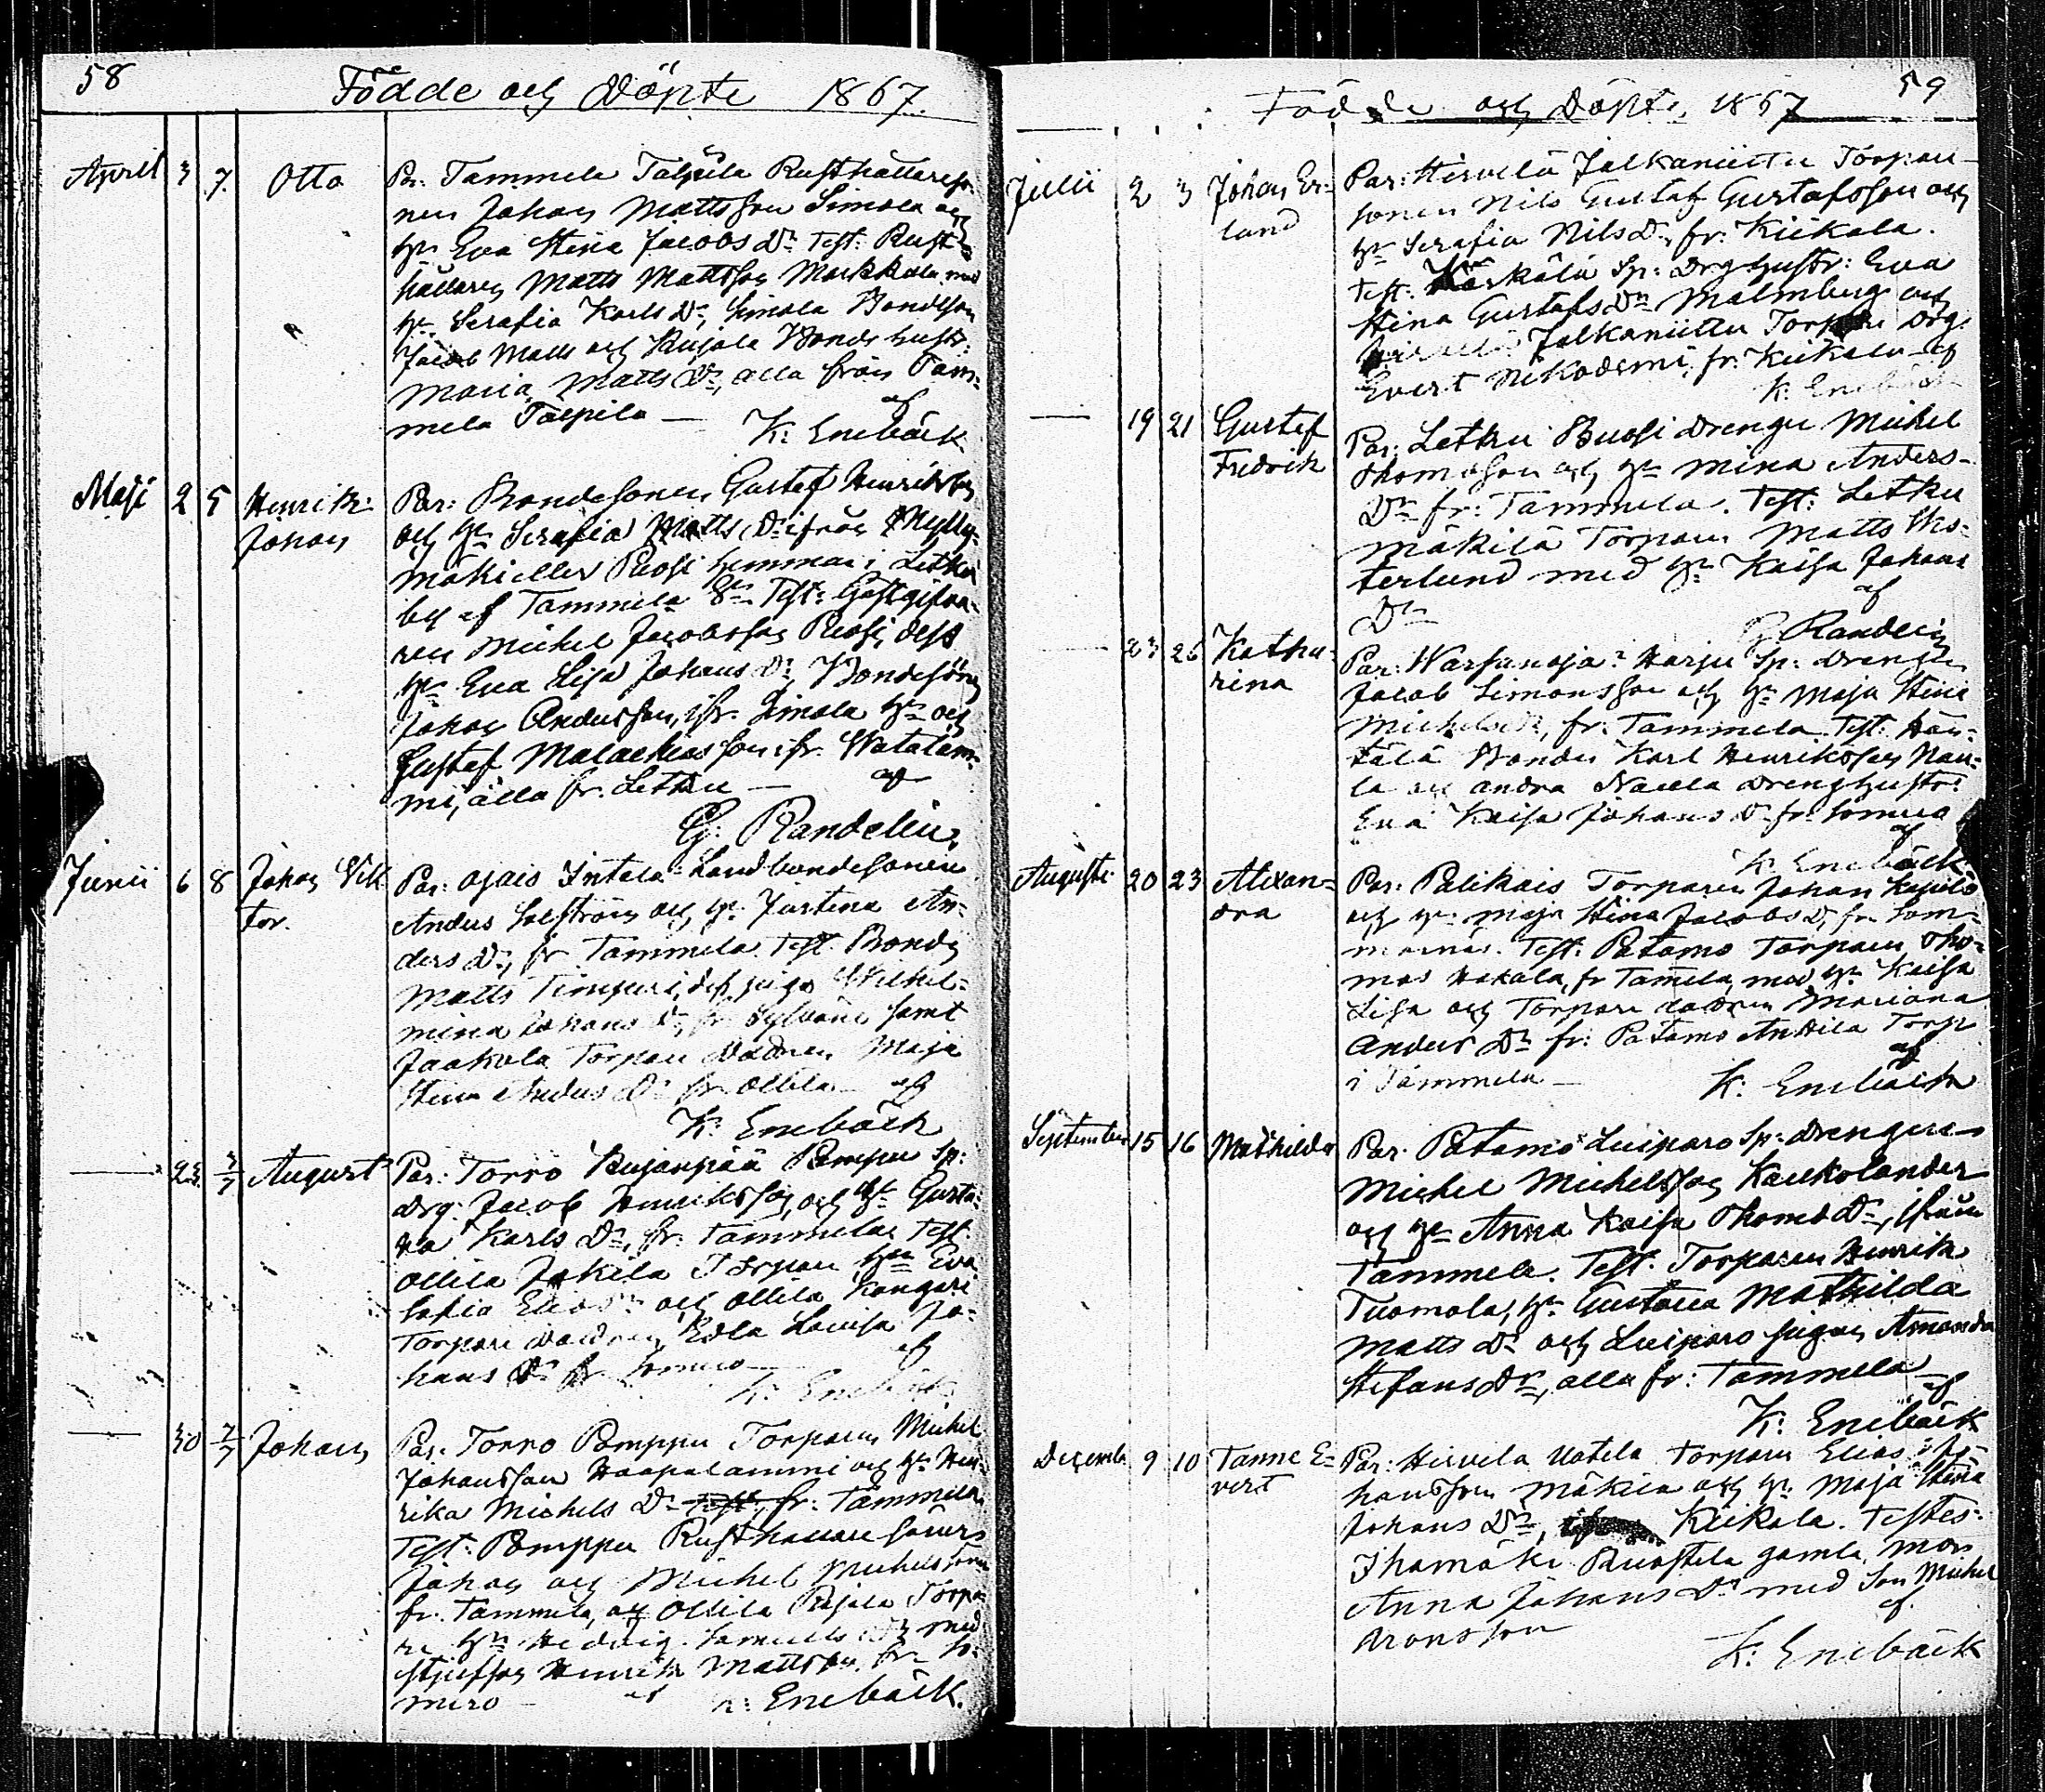 58
Födde och Döpte 1867.
April 3 7. Otto Par: Tammela Talpila Rusthållareso-
nen Johan Mattsson Simola och
hu Eva Stina Jacobs Dr Test: Rust-
hållaren Matts Mattsson Markkola med
hu Serafia Karls Dr, Simola Bondeson
Jacob Matts och Rujala Bonde hustr:
Maria Matts Dr, alla från Tam-
mela Talpila — af
K: Enebäck
Maji 2 5 Henrik Par: Bondesonen Gustaf Henriksson
Johan och hu Serafia Matts Dr ifrån Mylly-
mäki eller Ruosi hemman i Letku
by af Tammela Sn Test: Gästgifva-
ren Michel Jacobsson Ruosi, dess
hu Eva Lisa Johans Dr, Bondesonen
Johan Andersson, ifr. Simola hn och
Gustaf Malachiasson ifr. Watalam-
mi, alla fr. Letku — af
G: Randelin
Junii 6 8 Johan Vik Par: Ojais Intala Landbondesonen
tor. Anders Solström och hu Justina An-
ders Dr, fr Tammela Test. Bonden
Matts Timperi, des piga Wilhel-
mina Johans Dr, fr samt
Jaakola Torpare Maja
Stina Anders Dr fr. Ollila — af
K: Enebäck
— 23 3/7 August Par: Torro Kujanpää Pamppu Sp:
drg: Jacob Henriksson, och hu Gusta-
va Karls Dr, fr. Tammela Test:
Ollila Jokela Torpare hu Eva
Sofia Elias Dr och Ollila Kangari
Torpare Edla Lovisa Jo-
hans Dr fr Somero — af
K: Enebäck
— 30 7/7 Johan Par. Torro Pamppu Torparen Michel
Johansson Haapalammi och hu Hen-
rika Michels Dr fr: Tammela
Test: Pamppu Rusthållare söner
Johan och Michel Michelssöner
fr. Tammela, och Ollila Rajala Torpa-
re hu Hedvig Samuels Dr med
Henrik Mattsson fr So-
mero — af K: Enebäck.
59
Födde och Döpte 1867
Julii 2 3 Johan Er- Par: Hirvelä Jalkaniittu Torpare-
land sonen Nils Gustaf Gustafsson och
hu Serafia Nils Dr, fr: Kiikala.
Test: Härkälä Sp: Drg hustr: Eva
Stina Gustafs Dr Malmberg och
Jalkaniittu Torpare Drg:
Evert Nikodemi, fr. Kiikala af
K: Enebäck
— 19 21 Gustaf Par: Letku Ruosi Drengen Michel
Fredrik Thomasson och hu Mina Anders-
Dr fr: Tammela. Test: Letku
Mäkilä Torparen Matts
terlund med hu Kaisa Johans
Dr af
G Randelin
— 23 26 Katha- Par: Warsanoja Harju Sp: Drengen
rina Jacob Simonsson och hu Maja Stina
Michels Dr, fr: Tammela. Test: Hän-
tälä Bonden Karl Henriksson Nau-
la och andra Naula Dreng hustr:
Eva Kaisa Johans Dr fr Somero
af
K: Enebäck
Augusti 20 23 Alexan- Par: Palikais Torparen Johan
dra och hu Maja Stina Jacobs Dr fr. Som-
mernäs. Test: Patamo Torparen Tho-
mas Hakala, fr Tamela, med hu Kaisa
Lisa och Torpare Mariana
Anders Dr fr: Patamo Anttila Torp
i Tammela — af
K: Enebäck
September 15 16 Mathilda Par: Patamo Luiparo Sp: drengen
Michel Michelsson Kaukolander
och hu Anna Kaisa Thomas Dr, ifrån
Tammela. Test: Torparen Henrik
Tuomola, hu Gustava Mathilda
Matts Dr och Luiparo pigan Amanda
Stefans Dr, alla fr: Tammela —
af
K: Enebäck
Decembr 9 10 Tanne E- Par: Hirvela Uotila Torparen Elias Jo-
vert hansson Mäkilä och hu Maja Stina
Johans Dr, Kiikala. Testes:
Ihamäki Ruostela gamla mor
Anna Johans Dr med Son Michel
Aronsson af
K: Enebäck